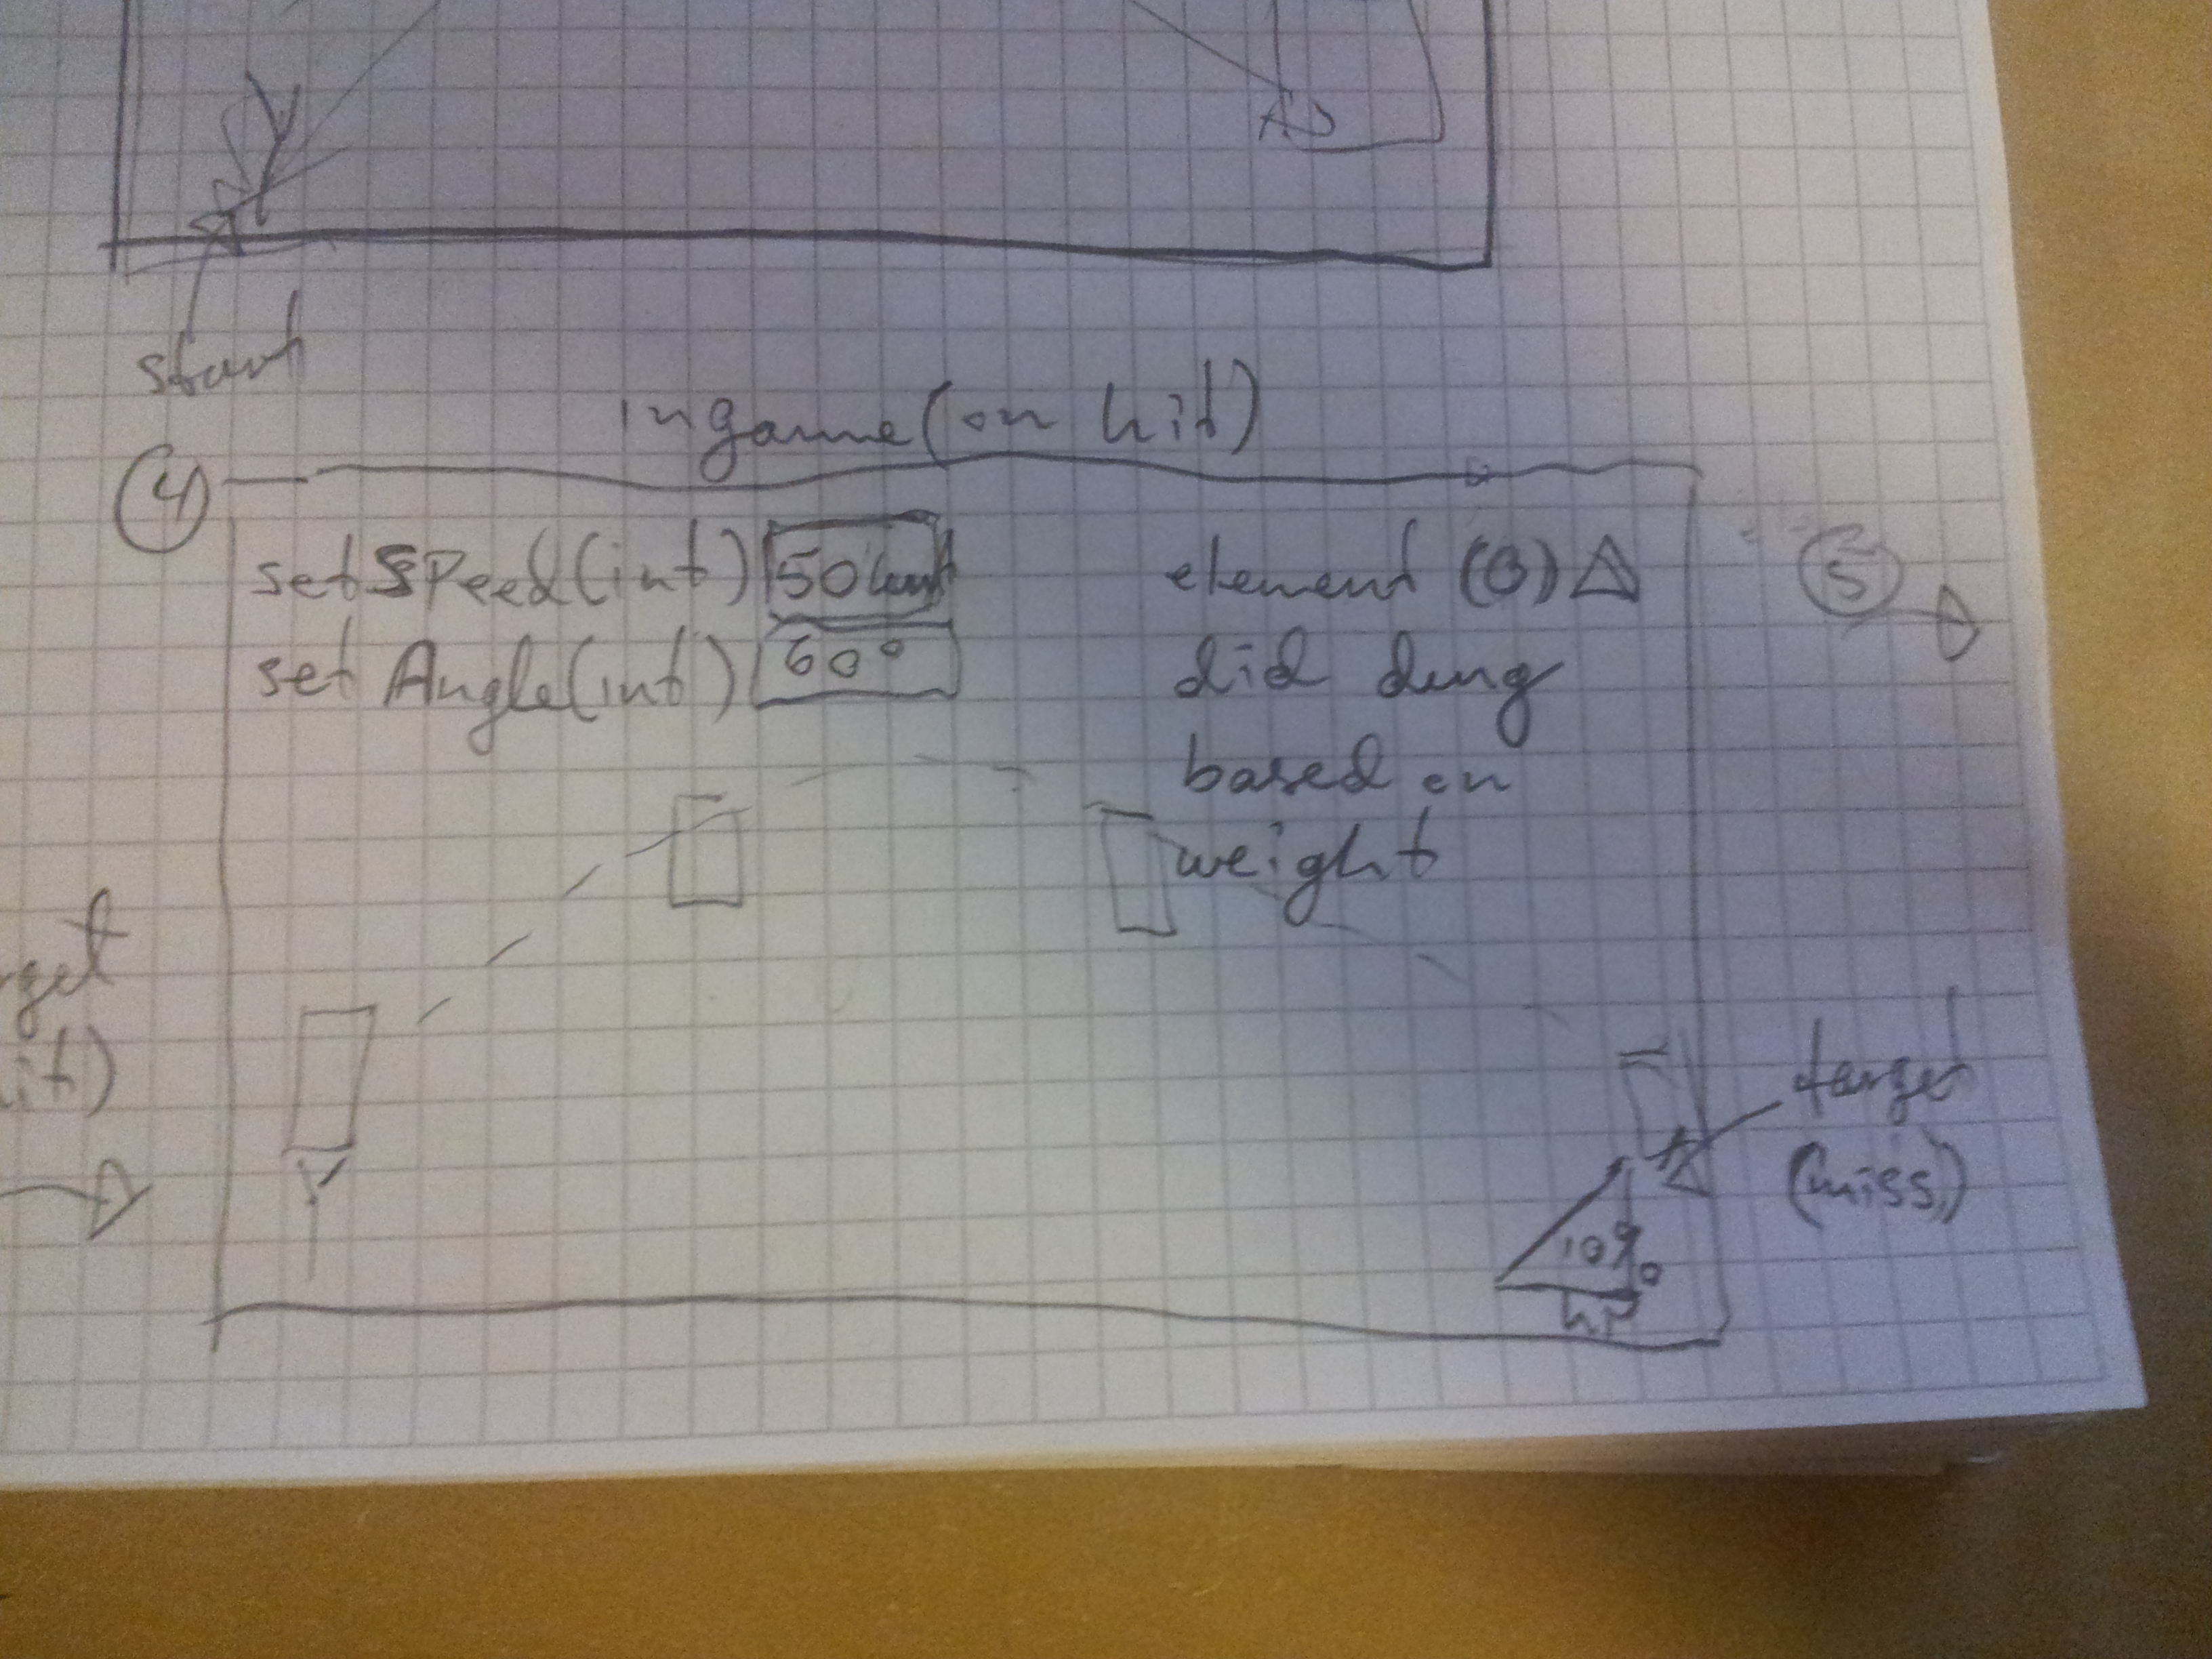 start
ingame (on hit)
4
set speed (int) 50 kmt
set Angle (int) 60°
element (B) △
did dmg
based on
weight
5
rget
it)
target
(miss)
10%
hp